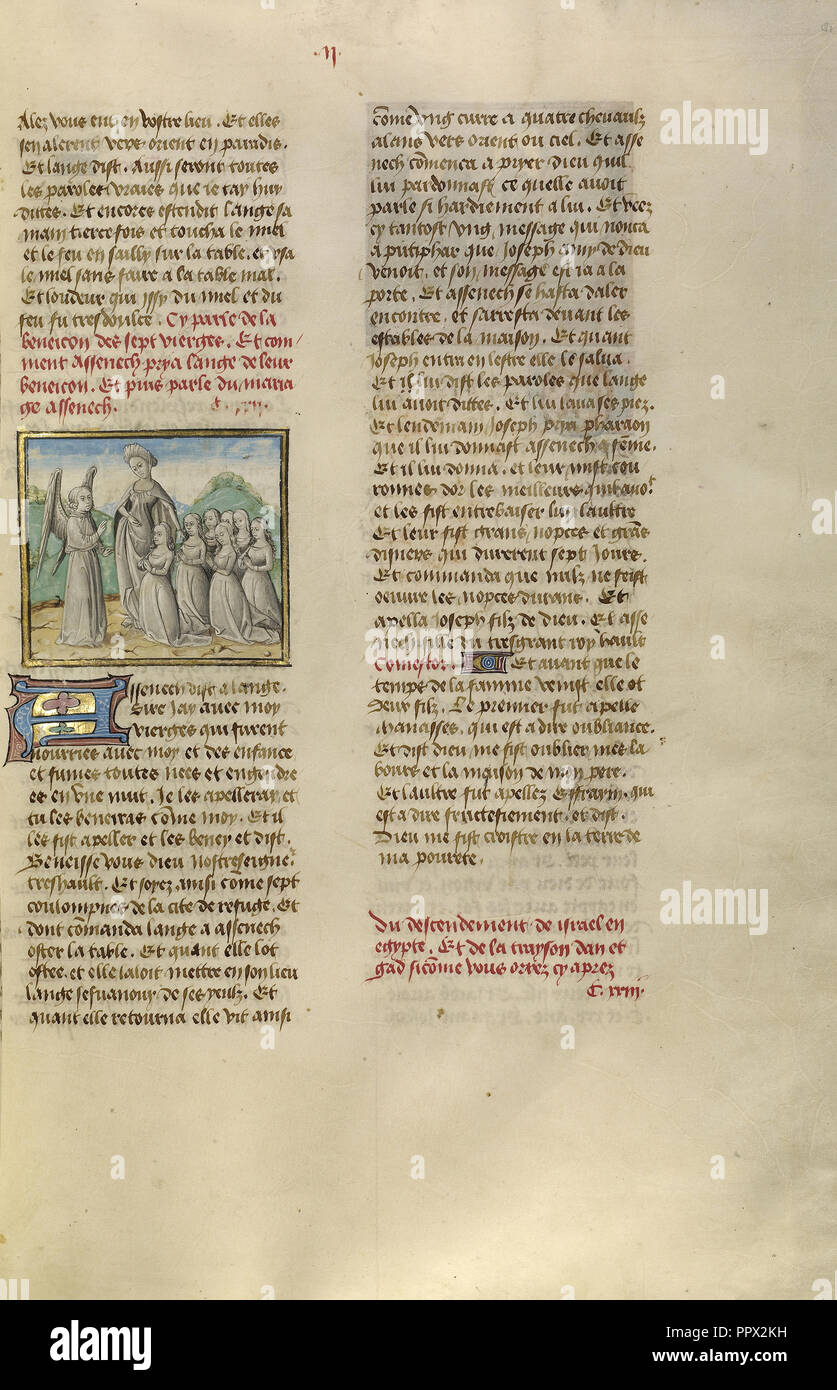 .II.
Alez vous ent en vostre lieu. Et elles
sen alerent vers orient en paradis.
Et lange dist. Aussi seront toutes
les paroles vraies que ie tay huy
dittes. Et encores estendit lange sa
main tierce fois et toucha le miel
et le feu en sailly sur la table. et usa
le miel sans faire a la table mal.
Et loudeur qui yssy du miel et du
feu fu tresdoulce. Cy parle de la
beneicon des sept vierges. Et com
ment assenech prya lange de leur
beneicon. Et puis parle du maria
ge assenech. C. xxii.
Assenech dist a lange.
Sire Jay avec moy
vierges qui furent
nourries avec moy et des enfance
et fumes toutes nees et engendre
es en une nuit. Je les apelleray et
tu les beneiras come moy. Et il
les fist apeller et les beney et dist.
Beneisse vous dieu nostre seigne
treshault. Et soyez ainsi come sept
coulompnes de la cite de refuge. Et
dont comanda lange a assenech
oster la table. Et quant elle lot
ostee. et elle laloit mettre en son lieu
lange sesvanouy de ses yeulz. Et
quant elle retourna elle vit ainsi
come ung curre a quatre chevaulz
alans vers orient ou ciel. Et asse
nech comenca a pryer dieu quil
lui pardonnast ce quelle avoit
parle si hardiement a lui. Et veez
cy tantost ung message qui nonca
a putiphar que Joseph amy de dieu
venoit. et son message est ia a la
porte. Et assenech se hasta daler
encontre. et sarresta devant les
estables de la maison. Et quant
Joseph entra en lestre elle le salua.
Et il lui dist les paroles que lange
lui avoit dittes. Et lui lava ses piez.
Et lendemain Joseph prya pharaon
que il lui donnast assenech a feme.
Et il lui donna. et leur mist cou
ronnes dor les meilleurs quil avoit
et les fist entrebaiser lun laultre
Et leur fist grans nopces et grans
disners qui durerent sept Jours.
Et commanda que nulz ne feist
oeuvre les nopces durans. Et
apella Joseph filz de dieu. Et asse
nech fille du tresgrant roy hault
Comestor. Et avant que le
temps de la famine venist elle ot
Deux filz. Le premier fut apelle
Manasses. qui est a dire oubliance.
Et dist dieu me fist oublier mes la
bours et la maison de mon pere.
Et laultre fut apellez Effraym. qui
est a dire fructefiement. et dist.
Dieu me fist croistre en la terre de
ma povrete.
Du descendement de israel en
egypte. Et de la trayson dan et
gad si come vous orrez cy aprez
C. xxiii.
alamy
alamy
Image ID: PPX2KH
www.alamy.com